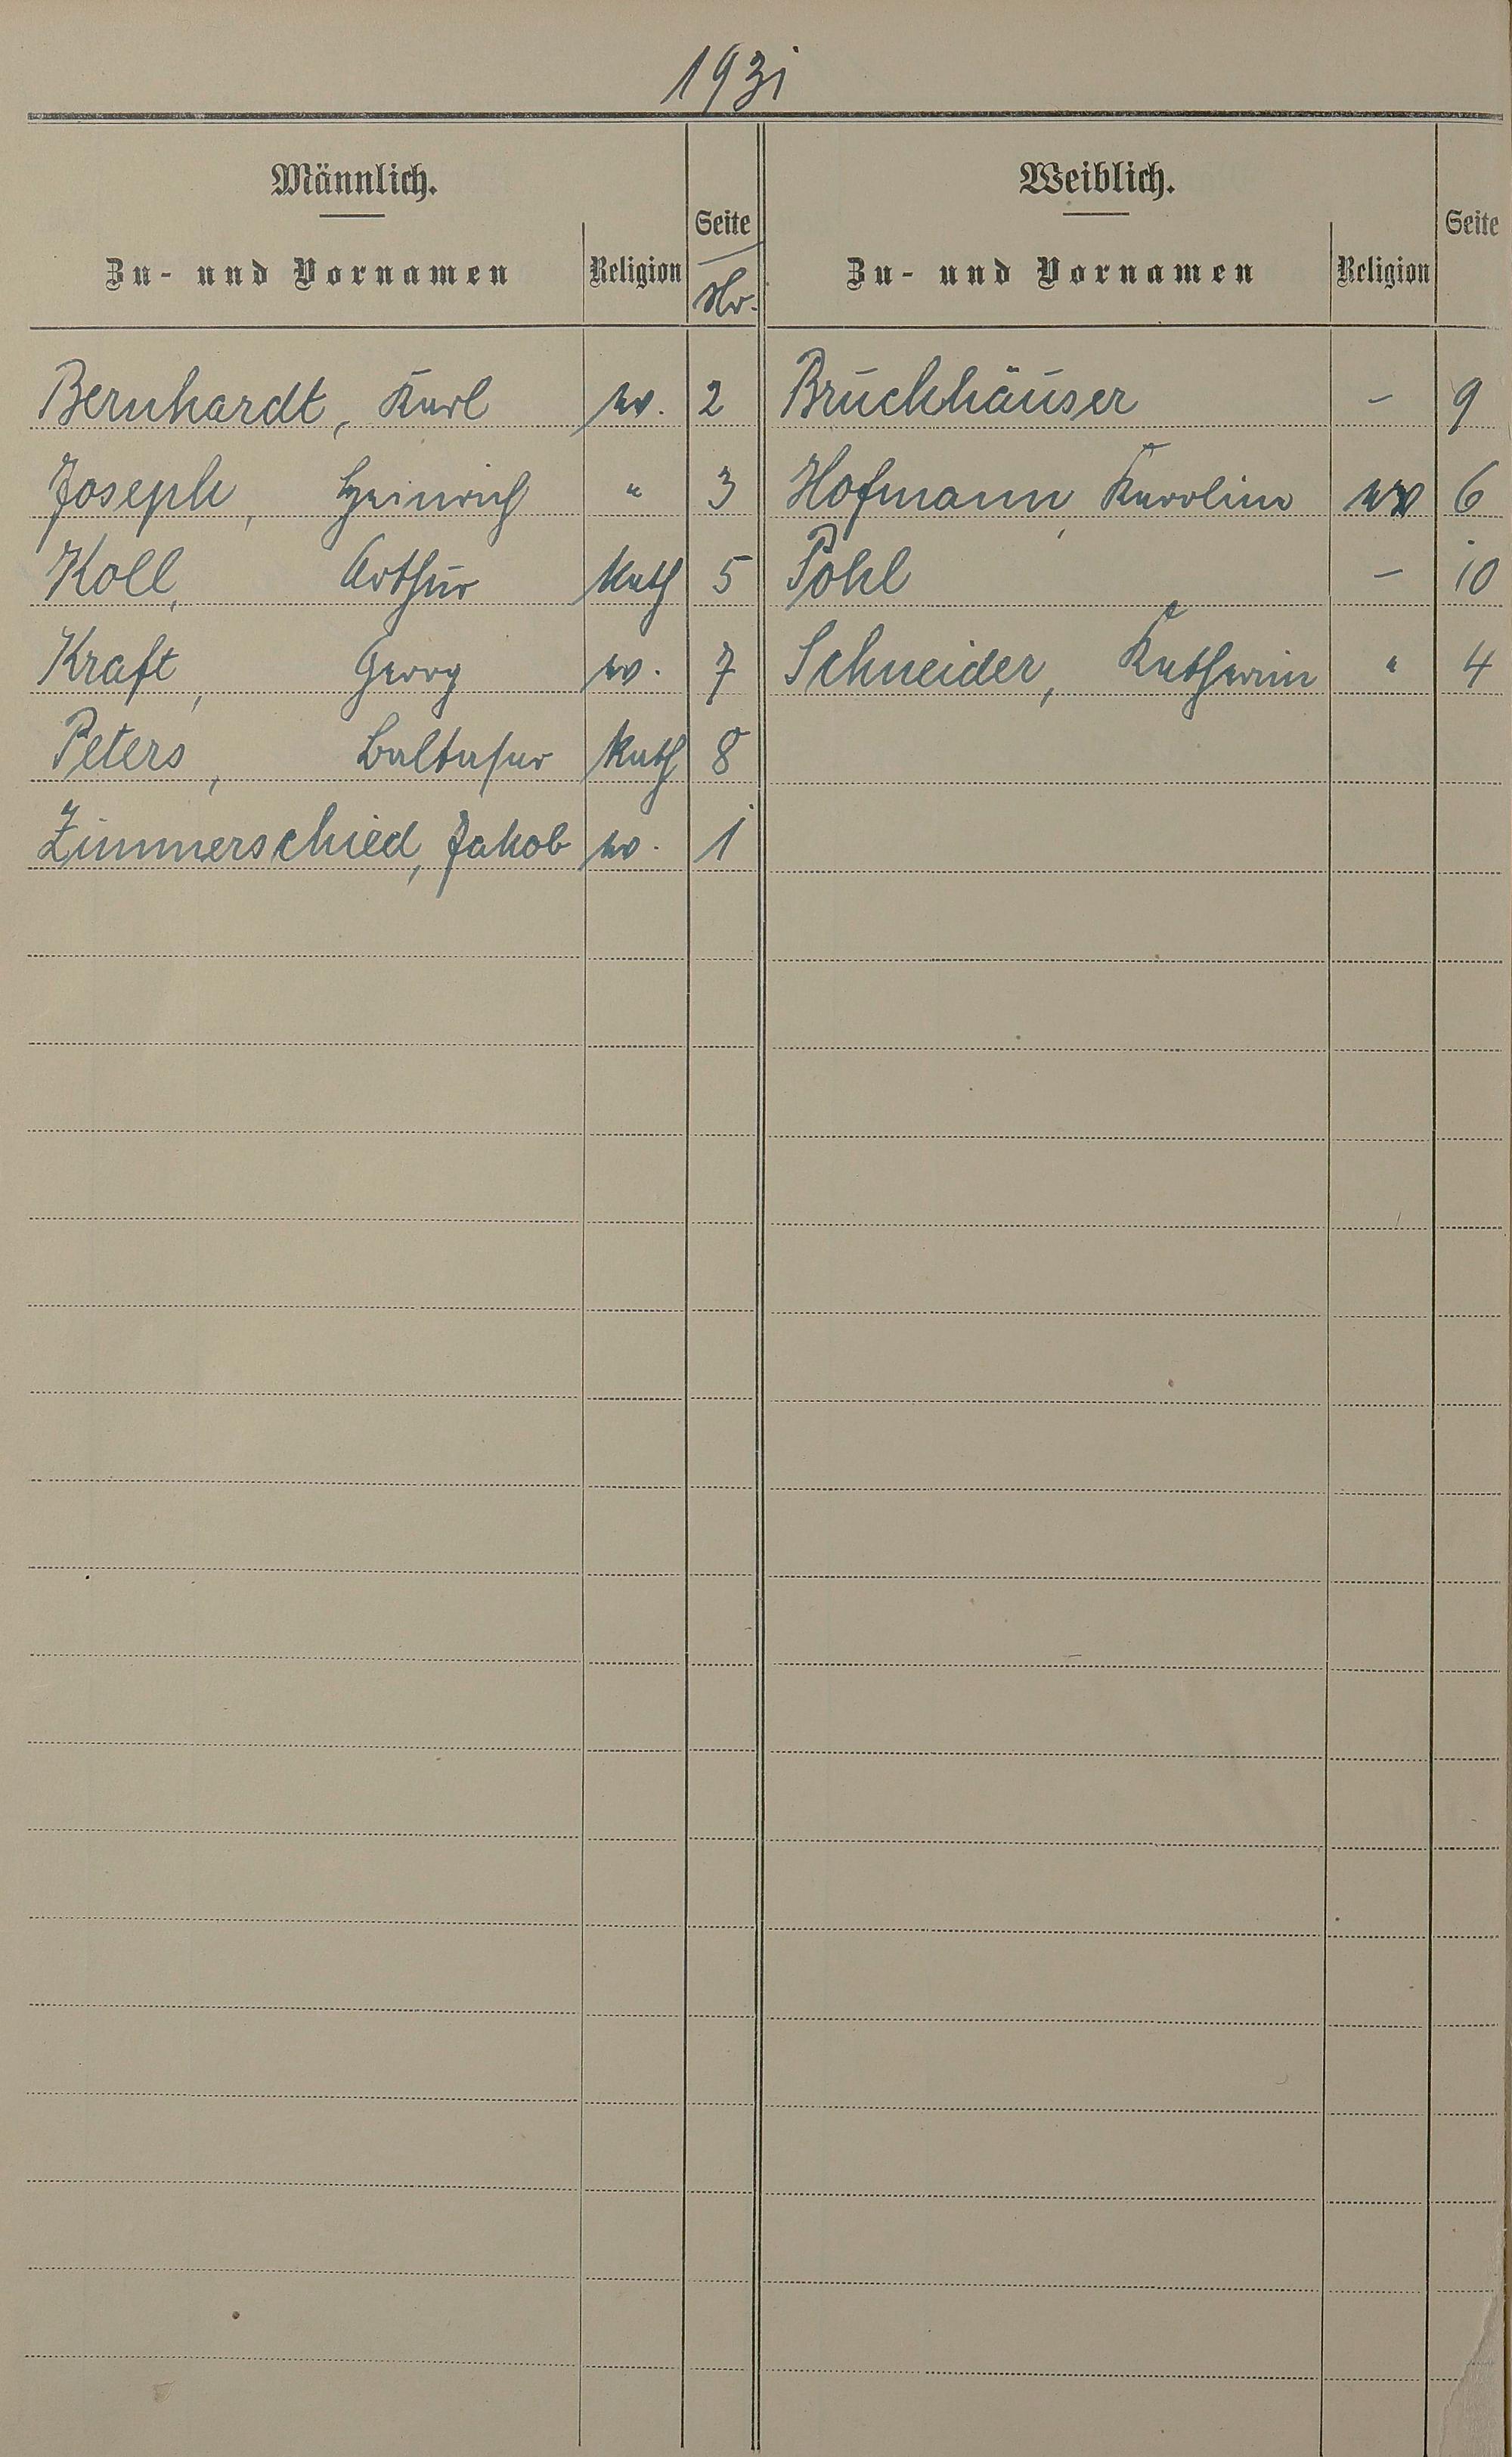 1931
Männlich.
Zu- und Vornamen Religion Seite
Nr.
Bernhardt, Karl ev. 2
Joseph, Heinrich " 3
Koll, Arthur kath 5
Kraft, Georg ev. 7
Peters, Baltasar kath 8
Zimmerschied, Jakob ev. 1
Weiblich.
Zu- und Vornamen Religion Seite
Bruchhäuser - 9
Hofmann, Karoline ev 6
Pohl - 10
Schneider, Katharine " 4